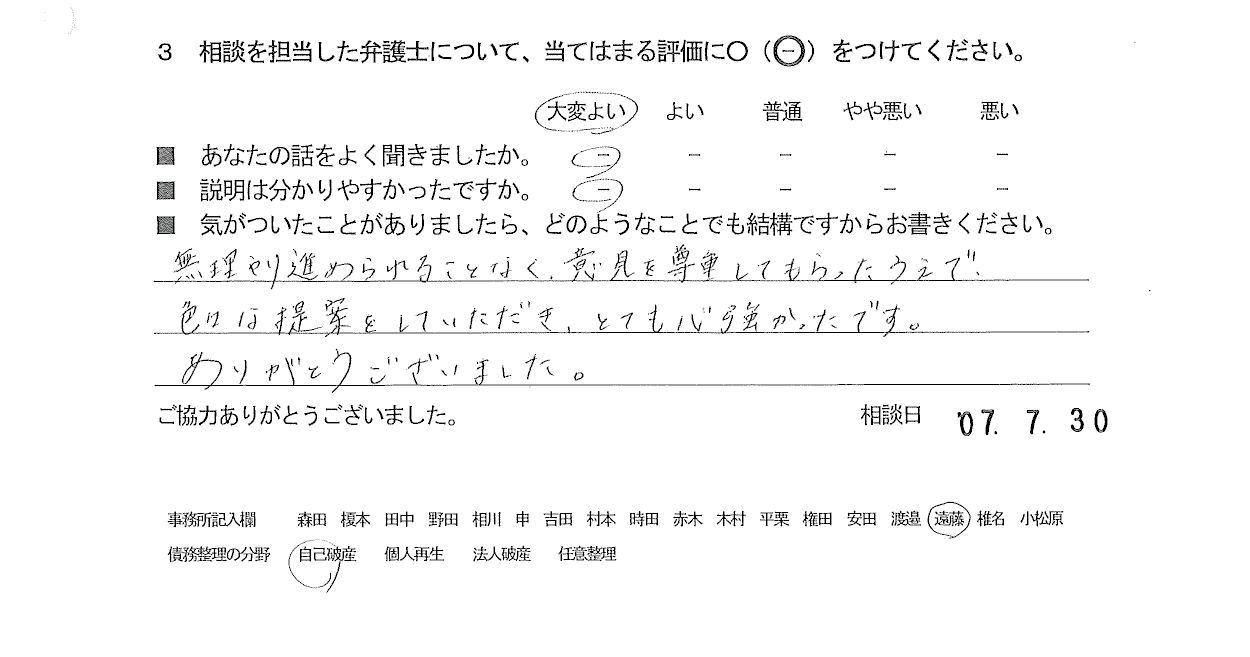 3 相談を担当した弁護士について、当てはまる評価に〇（㊀）をつけてください。
大変よい よい 普通 やや悪い 悪い
■ あなたの話をよく聞きましたか。 － － － － －
■ 説明は分かりやすかったですか。 － － － － －
■ 気がついたことがありましたら、どのようなことでも結構ですからお書きください。
無理やり進められることなく、意見を尊重してもらったうえで、
色々な提案をしていただき、とても心強かったです。
ありがとうございました。
ご協力ありがとうございました。 相談日 '07. 7. 30
事務所記入欄 森田 榎本 田中 野田 相川 申 吉田 村本 時田 赤木 木村 平栗 権田 安田 渡邉 遠藤 椎名 小松原
債務整理の分野 自己破産 個人再生 法人破産 任意整理